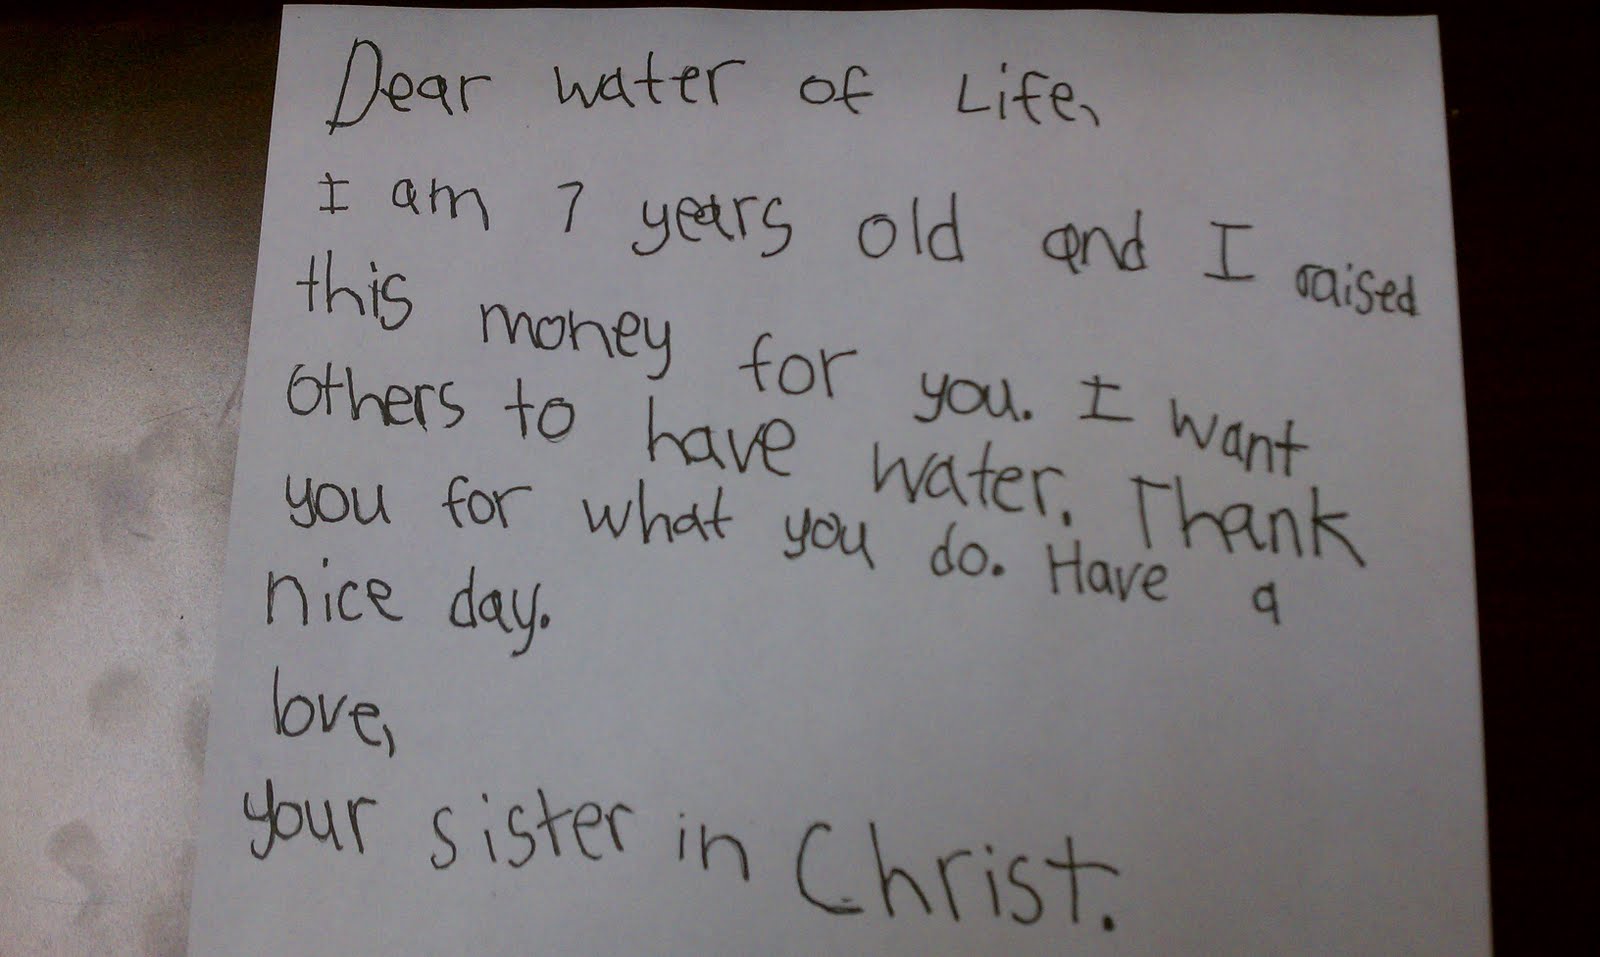 Dear water of Life,
I am 7 years old and I raised
this money for you. I want
others to have water. Thank
you for what you do. Have a
nice day.
love,
your sister in Christ.